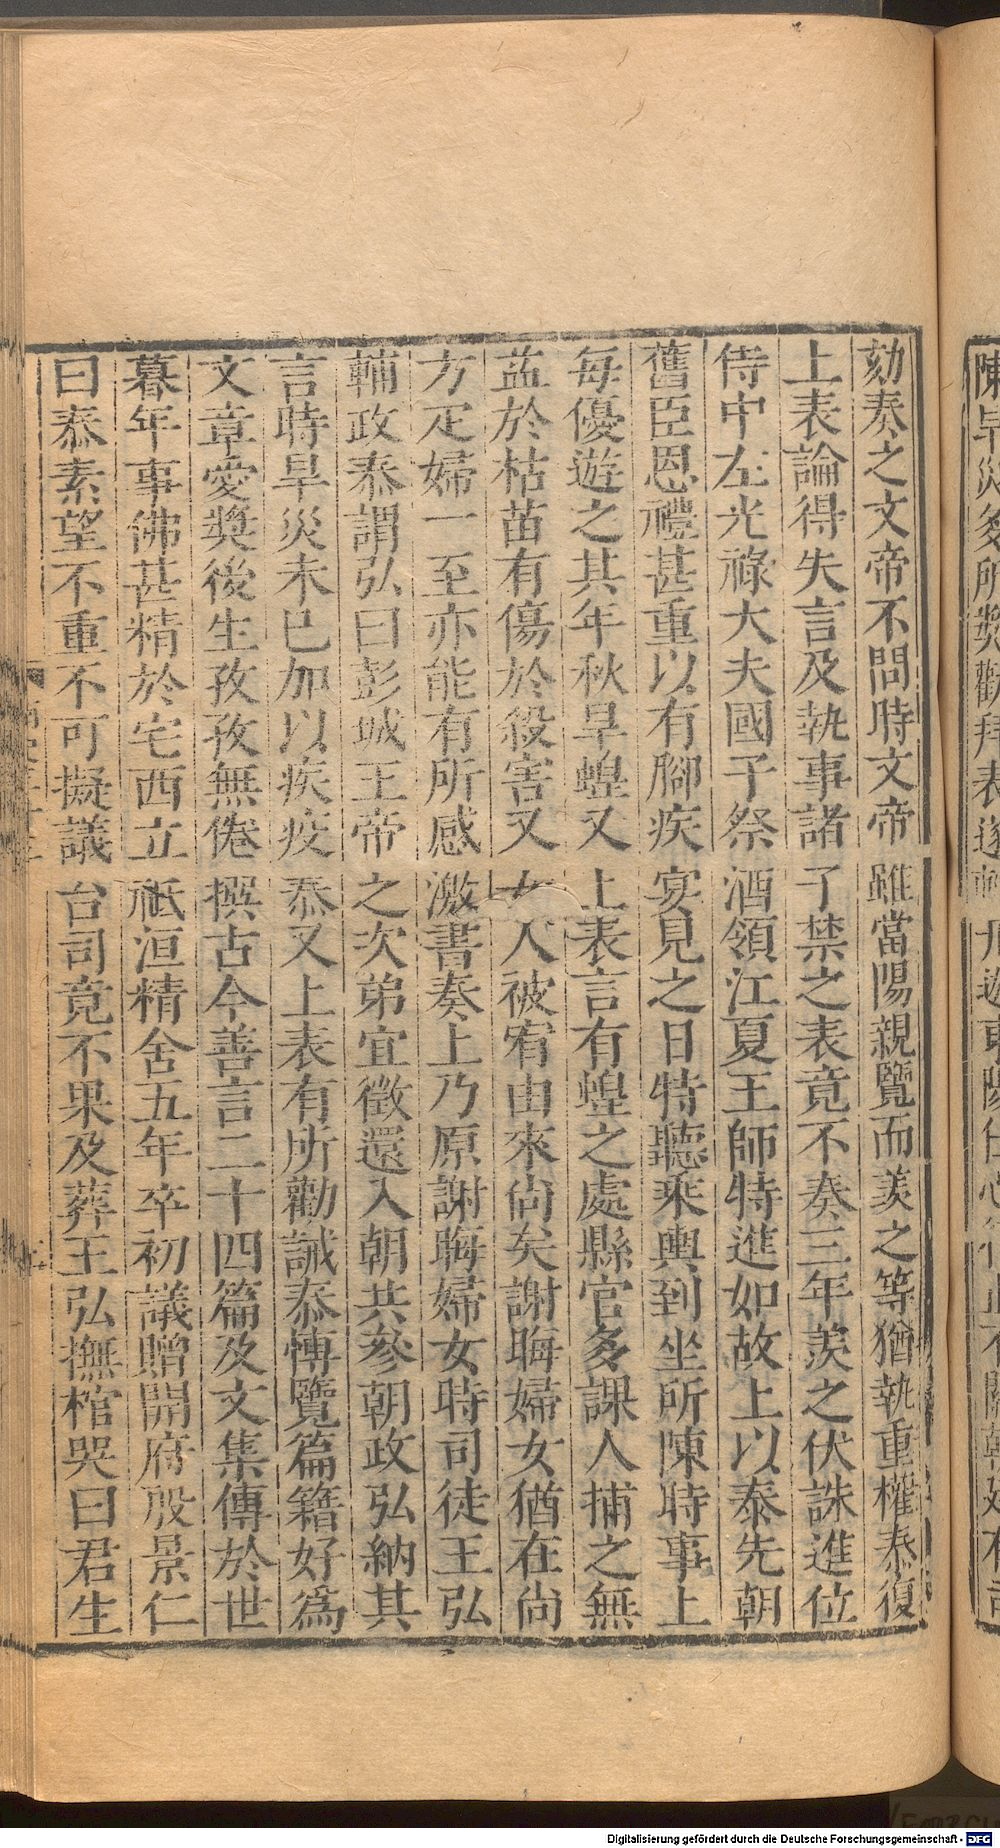 劾奏之文帝不問時文帝雖當陽親覽而羨之等猶執重權泰復
上表論得失言及執事諸子禁之表竟不奏三年羨之伏誅進位
侍中左光祿大夫國子祭酒領江夏王師特進如故上以泰先朝
舊臣恩禮甚重以有腳疾宴見之日特聽乘輿到坐所陳時事上
每優遊之其年秋旱蝗又上表言有蝗之處縣官多課人捕之無
益於枯苗有傷於殺害又女人被宥由來尚矣謝晦婦女猶在尚
方疋婦一至亦能有所感激書奏上乃原謝晦婦女時司徒王弘
輔政泰謂弘曰彭城王帝之次弟宜徵還入朝共參朝政弘納其
言時旱災未已加以疾疫泰又上表有所勸誡泰博覽篇籍好為
文章愛獎後生孜孜無倦撰古今善言二十四篇及文集傳於世
暮年事佛甚精於宅西立祗洹精舍五年卒初議贈開府殷景仁
曰泰素望不重不可擬議台司竟不果及葬王弘撫棺哭曰君生
Digitalisierung gefördert durch die Deutsche Forschungsgemeinschaft - DFG